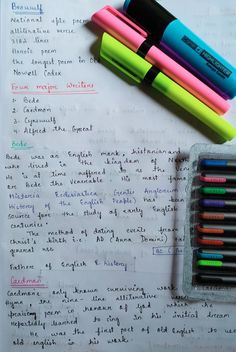 Beowulf
National epic poem
alliterative verse
3182 lines
Heroic poem
the longest poem in Old
Nowell Codex
Four major Writers
1. Bede
2. Caedmon
3. Cynewulf
4. Alfred the Great
Bede
Bede was an English monk, historian and
was lived in the kingdom of
He is at time referred to as the
or Bede the venerable most famous
Historia Ecclesiastica Gentis Anglorum
History of the English People) has been
source for the study of early English
centuries.
The method of dating events from
Christ's birth i.e. AD (Anno Domini)
general use
Father of English history
Caedmon
Caedmon's only known surviving work
Hymn a the nine-line alliterative
praising poem in honour of God which he
reportedly learned to sing in his initial dream
He was the first poet of Old English to use
old english in his work.